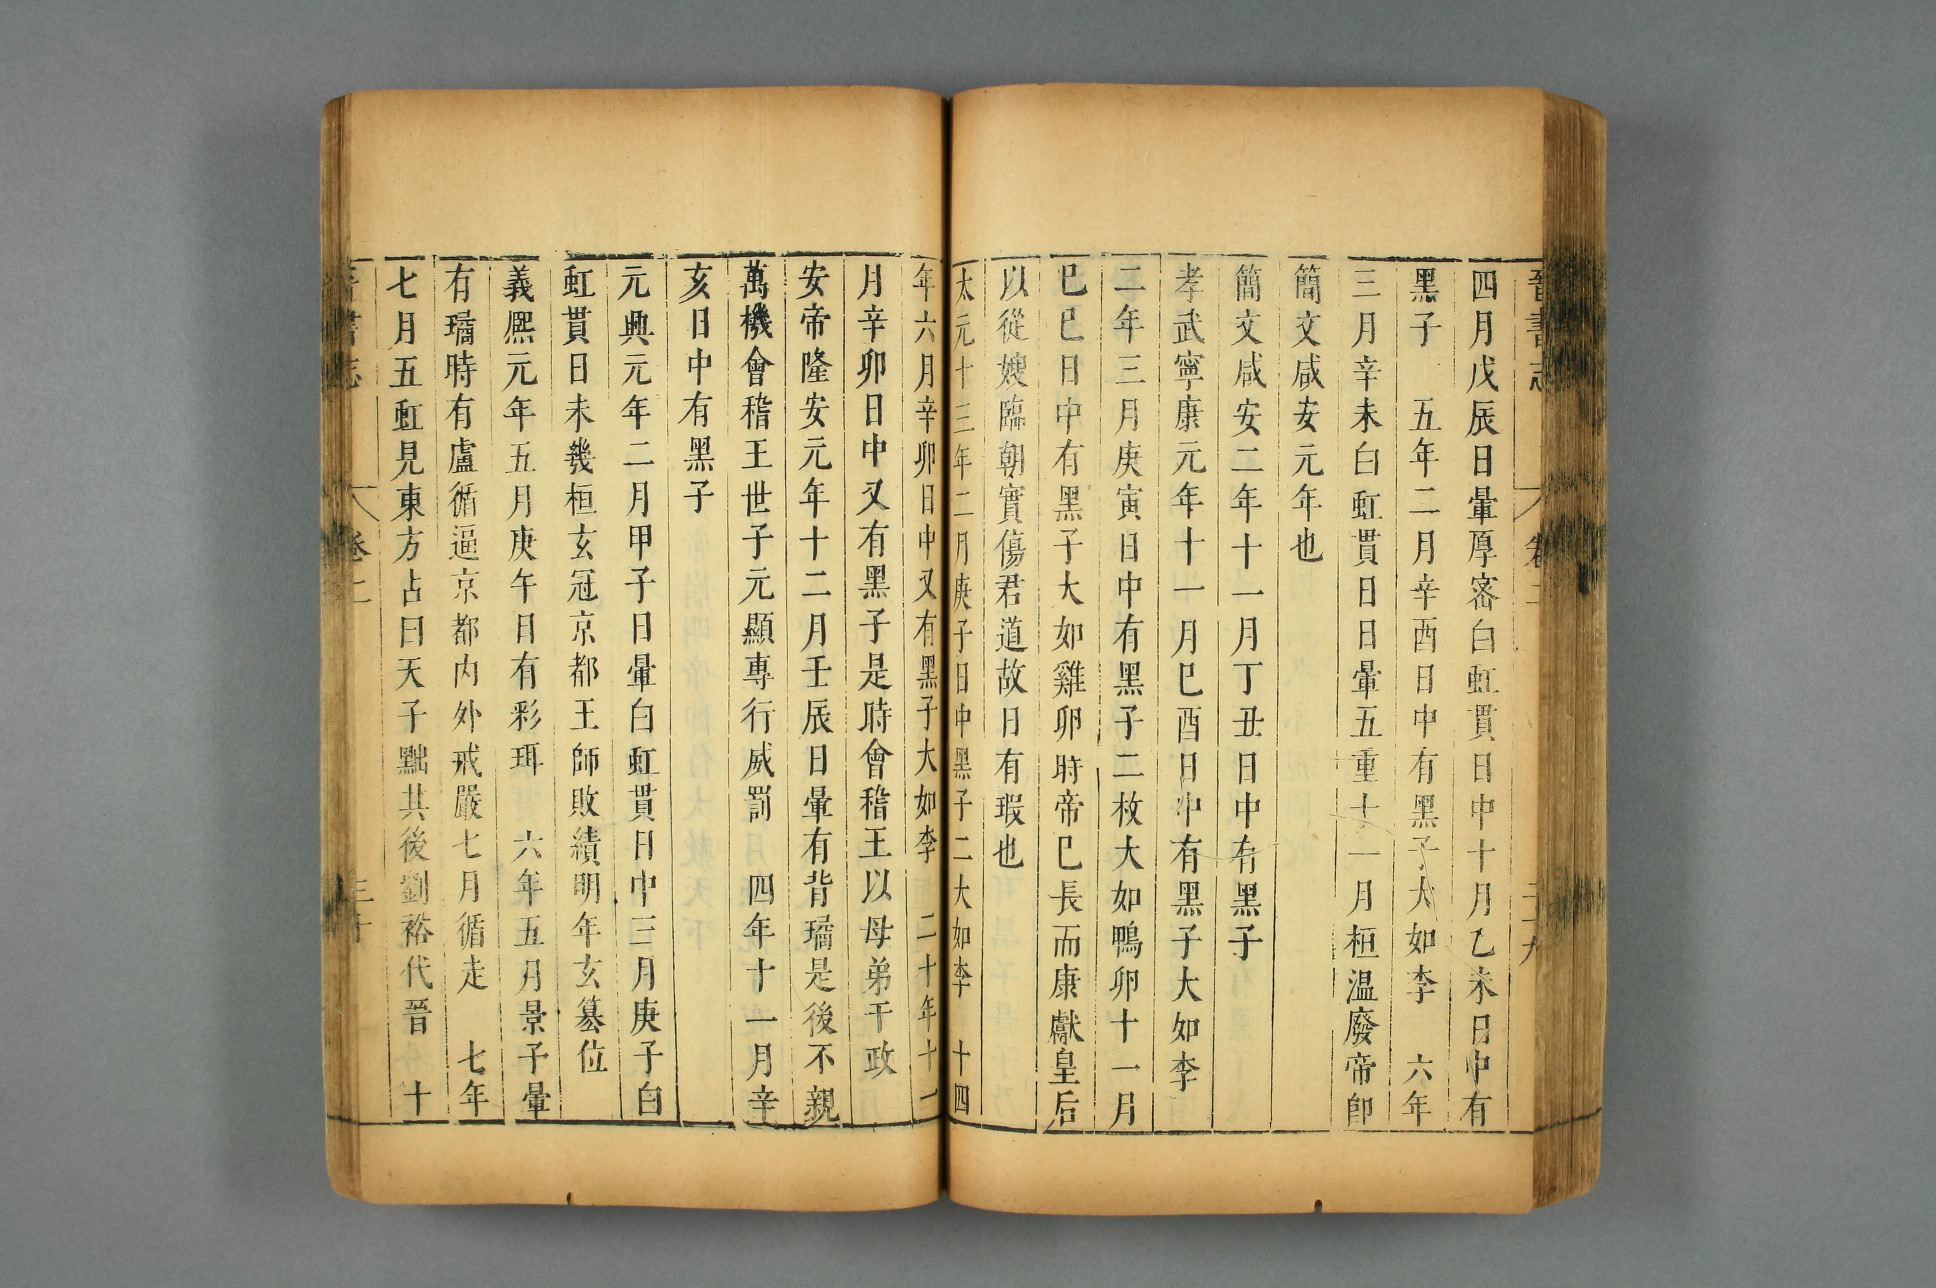 晉書志 卷二 三十九
四月戊辰日暈厚密白虹貫日中十月乙未日中有
黑子 五年二月辛酉日中有黑子大如李 六年
三月辛未白虹貫日日暈五重十一月桓温廢帝卽
簡文咸安元年也
簡文咸安二年十一月丁丑日中有黑子
孝武寧康元年十一月巳酉日中有黑子大如李
二年三月庚寅日中有黑子二枚大如鴨卵十一月
巳巳日中有黑子大如雞卵時帝巳長而康獻皇后
以從嫂臨朝實傷君道故日有瑕也
太元十三年二月庚子日中黑子二大如李 十四
年六月辛卯日中又有黑子大如李 二十年十一
月辛卯日中又有黑子是時會稽王以母弟干政
安帝隆安元年十二月壬辰日暈有背璚是後不親
萬機會稽王世子元顯專行威罰 四年十一月辛
亥日中有黑子
元興元年二月甲子日暈白虹貫日中三月庚子白
虹貫日未幾桓玄冠京都王師敗績明年玄篡位
義熙元年五月庚午日有彩珥 六年五月景子暈
有璚時有盧循逼京都内外戒嚴七月循走 七年
七月五虹見東方占曰天子黜其後劉裕代晉 十
晉書志 卷二